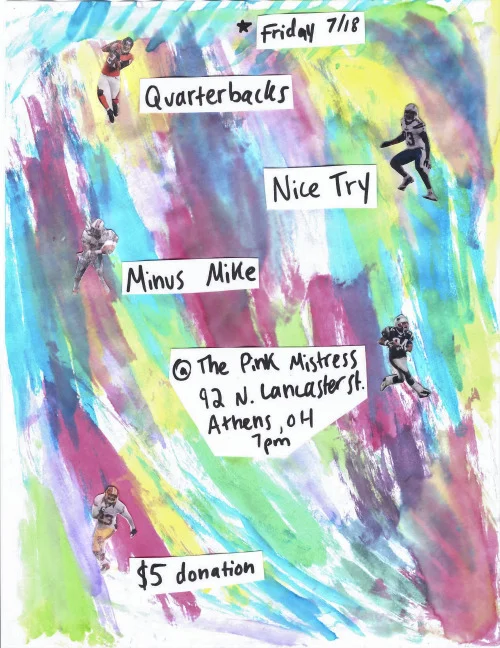 ★ Friday 7/18
Quarterbacks
Nice Try
Minus Mike
@ The Pink Mistress
92 N. Lancaster st.
Athens, OH
7pm
$5 donation